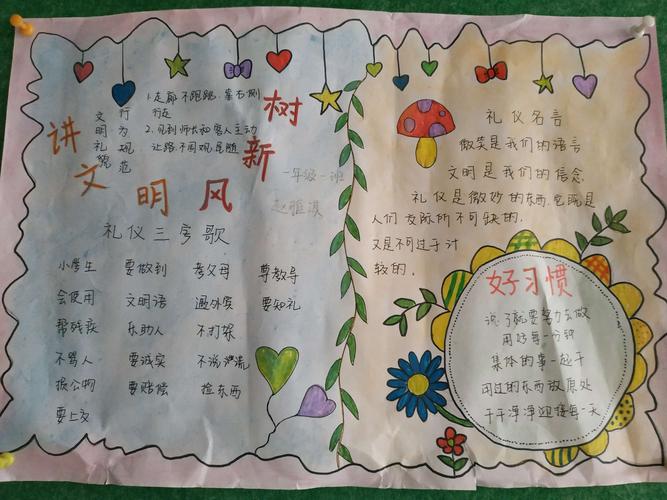 讲文明
树新风
文明礼貌
行为规范
1.走廊不跑跳,靠右侧
行走
2.见到师长和客人主动
让路不围观尾随
一年级一班
礼仪三字歌
小学生 要做到 孝父母 尊教导
会使用 文明语 遇外宾 要知礼
帮残疾 乐助人 不打架
不骂人 要诚实 不说谎
损公物 要赔偿 捡东西
要上交
礼仪名言
微笑是我们的语言
文明是我们的信念
礼仪是微妙的东西,它既是
人们交际所不可缺的,
又是不可过于计
较的。
好习惯
说了就要努力去做
用好每一分钟
集体的事一起干
用过的东西放原处
干干净净迎接每一天